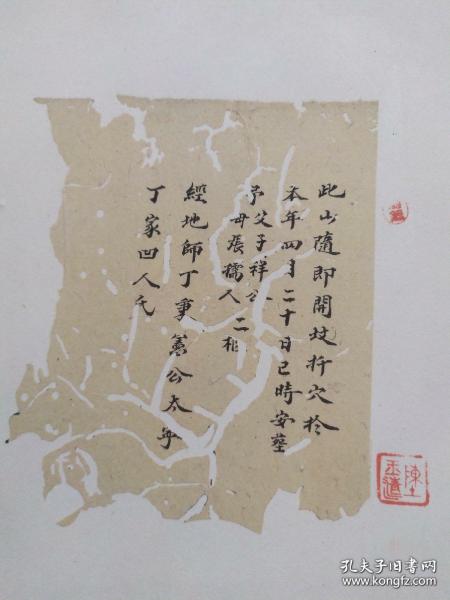 此山隨即開坟扦穴於
本年四月二十日巳時安塟
予父子祥公
母張孺人二柩
經地師丁事蕃公太平
丁家凹人氏
孔夫子旧书网
www.kongfz.com